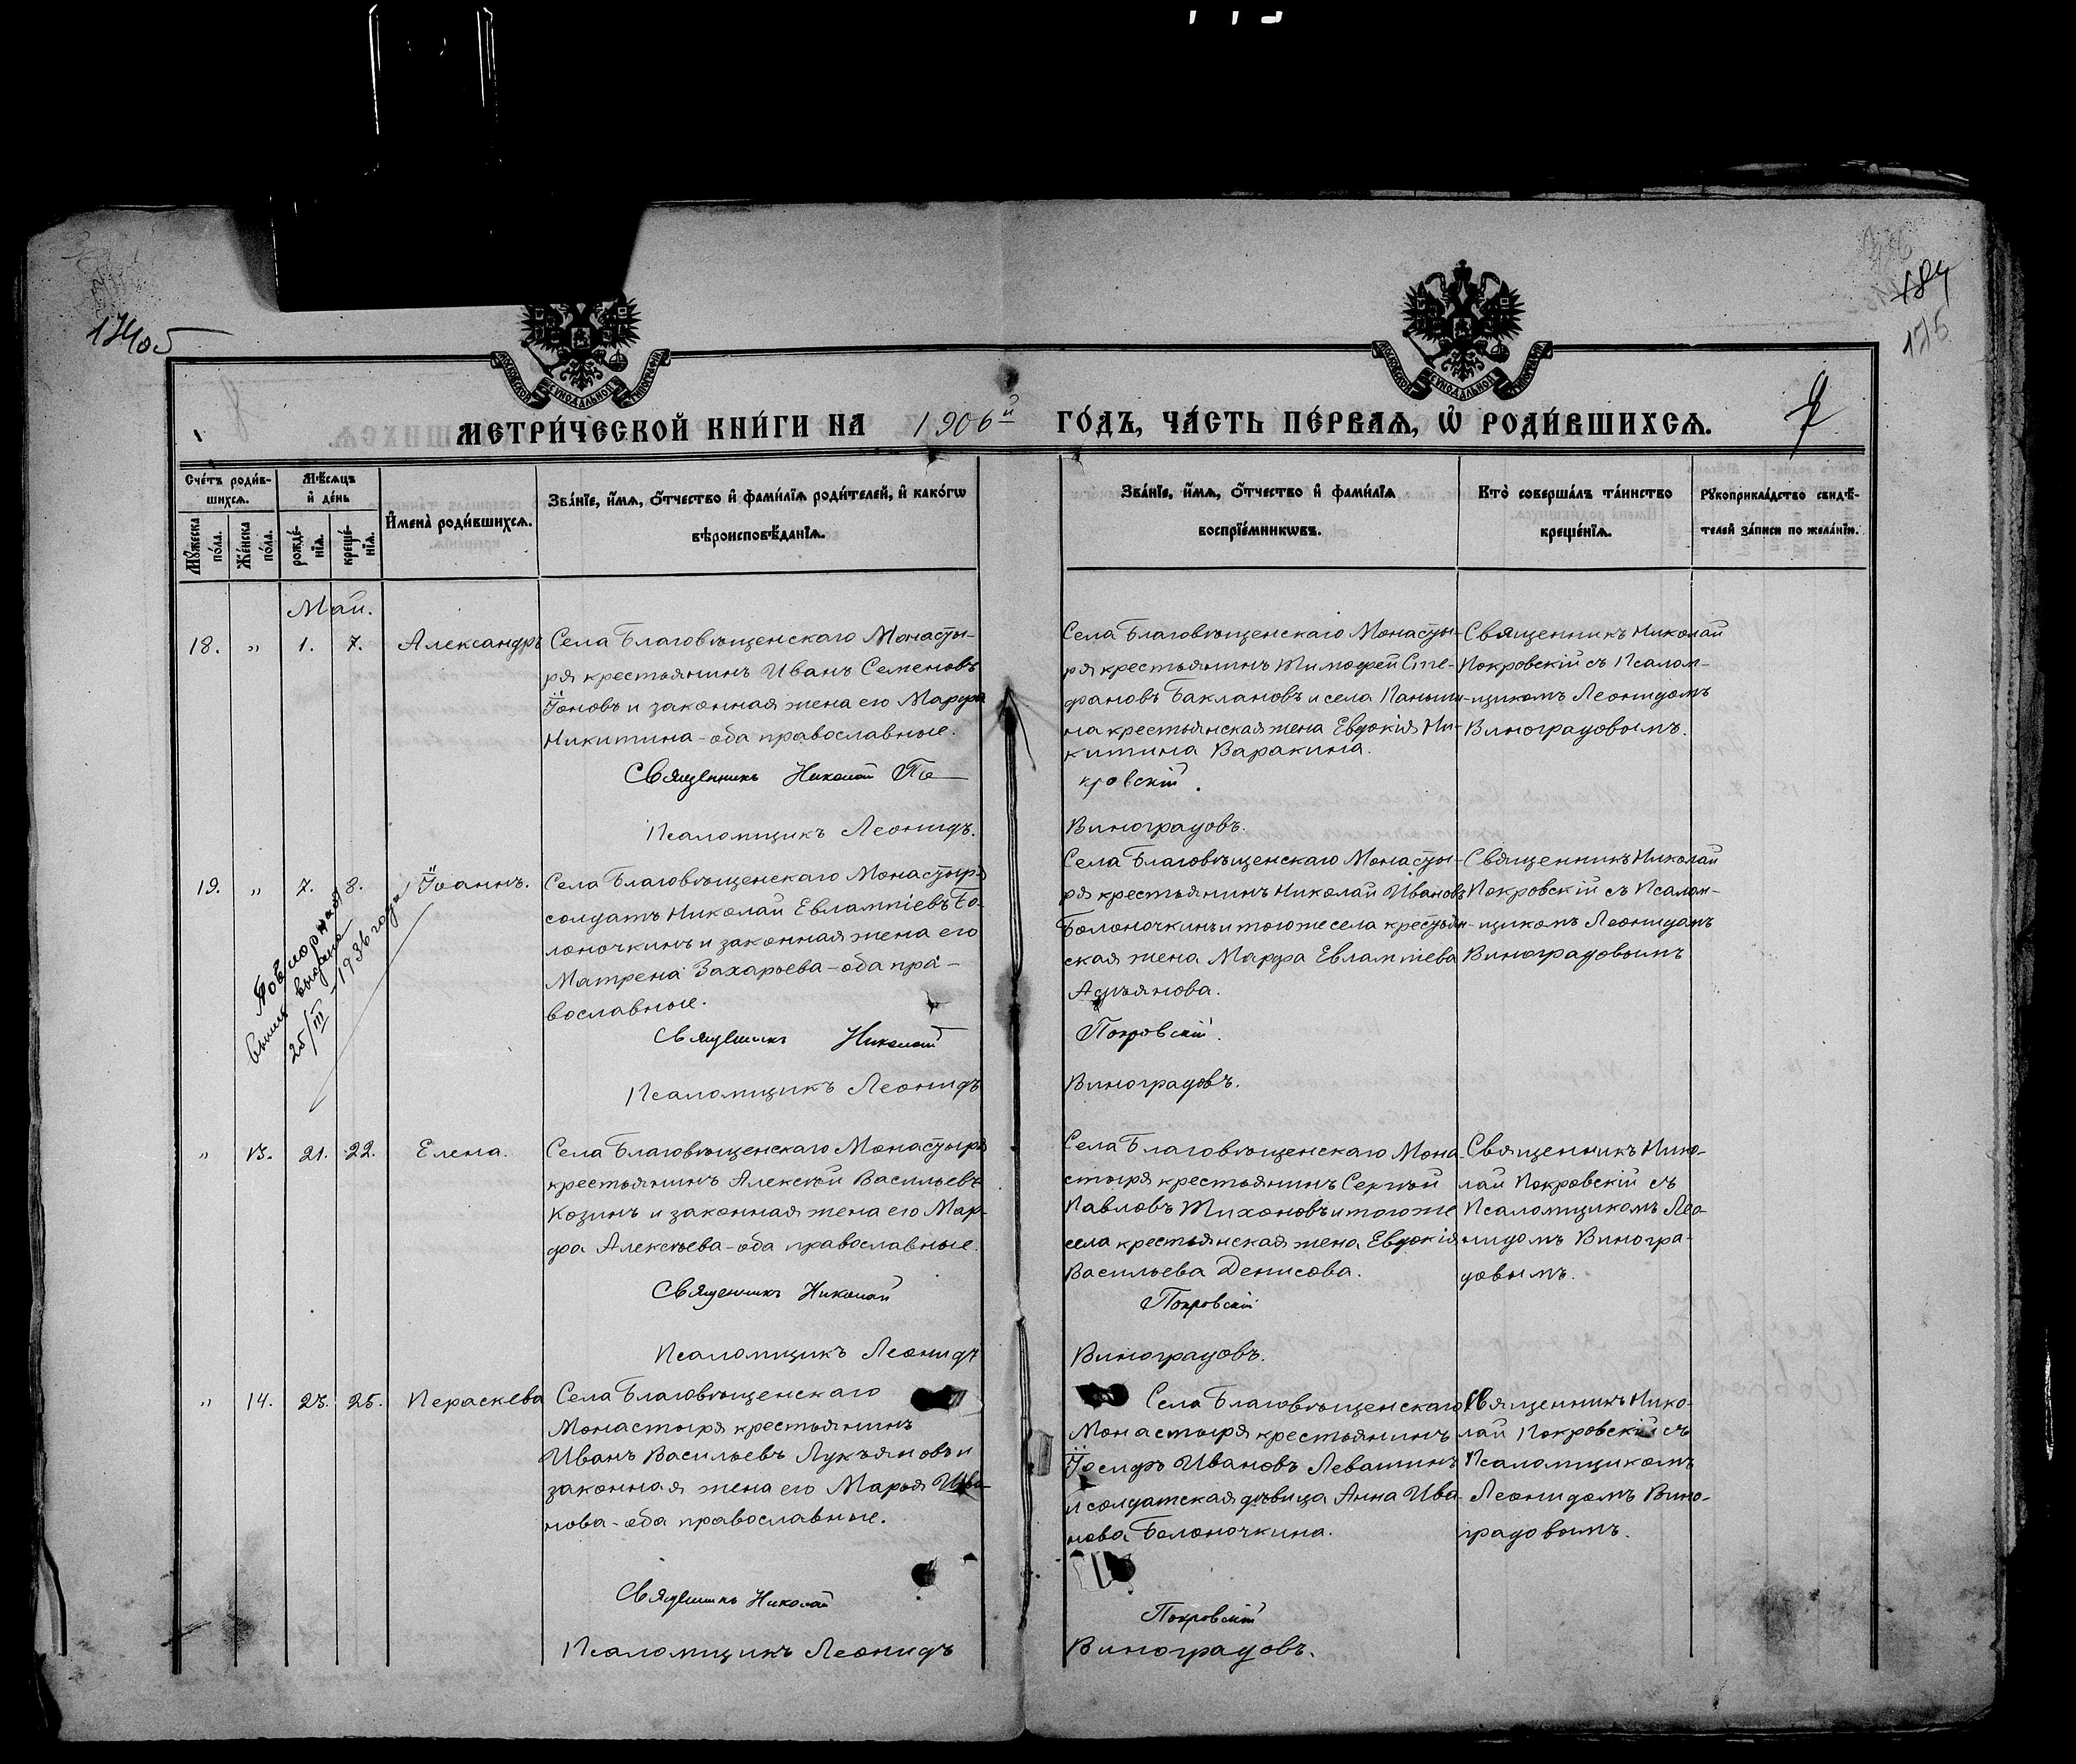 174об
184
175
МОСКОВСКОЙ СѴНОДАЛЬНОЙ ТИПОГРАФІИ
МОСКОВСКОЙ СѴНОДАЛЬНОЙ ТИПОГРАФІИ
МЕТРИ́ЧЕСКОЙ КНИ́ГИ НА 1906й ГО́ДЪ, ЧА́СТЬ ПЕ́РВАѦ, Ѡ҆ РОДИ́ВШИХСѦ.
Сче́тъ роди́в-
шихсѧ.
Мꙋ́жеска по́ла.
Же́нска по́ла.
Мѣ́сѧцъ
и҆ де́нь
рожде́-нїѧ.
креще́-нїѧ.
И҆мена̀ роди́вшихсѧ.
Зва́нїе, и҆́мѧ, ѻ҆́тчество и҆ фами́лїѧ роди́телей, и҆ како́гѡ
вѣроисповѣ́данїѧ.
Зва́нїе, и҆́мѧ, ѻ҆́тчество и҆ фами́лїѧ
воспрїе́мникѡвъ.
Кто̀ соверша́лъ та́инство
креще́нїѧ.
Рꙋкоприкла́дство свидѣ́-
телей за́писи по жела́нїю.
Май.
18. „ 1. 7. Александръ
Села Благовѣщенскаго Монасты-
ря крестьянинъ Иванъ Семеновъ
Іоновъ и законная жена его Марфа
Никитина - оба православные.
Священникъ Николай По-
Псаломщикъ Леонидъ.
Села Благовѣщенскаго Монасты-
ря крестьянинъ Тимофей Сте-
фановъ Баклановъ и села Паньши-
на крестьянская жена Евдокія Ни-
китина Варакина.
кровскій.
Виноградовъ.
Священникъ Николай
Покровскій съ Псалом-
щикомъ Леонидомъ
Виноградовымъ.
19. „ 7. 8. Іоаннъ.
Повторная
выпись выдана
25/III - 1936 года
Села Благовѣщенскаго Монастыря
солдатъ Николай Евлампіевъ Бо-
лоночкинъ и законная жена его
Матрена Захарьева - оба пра-
вославные.
Священникъ Николай
Псаломщикъ Леонидъ
Села Благовѣщенскаго Монасты-
ря крестьянинъ Николай Ивановъ
Болоночкинъ и тогоже села крестьян-
ская жена Марфа Евлампіева
Адъянова.
Покровскій.
Виноградовъ.
Священникъ Николай
Покровскій съ Псалом-
щикомъ Леонидомъ
Виноградовымъ
„ 13. 21. 22. Елена.
Села Благовѣщенскаго Монастыря
крестьянинъ Алексѣй Васильевъ
Козинъ и законная жена его Мар-
фа Алексѣева - оба православные.
Священникъ Николай
Псаломщикъ Леонидъ
Села Благовѣщенскаго Мона-
стыря крестьянинъ Сергѣй
Павловъ Тихоновъ и тогоже
села крестьянская жена Евдокія
Васильева Денисова.
Покровскій
Виноградовъ.
Священникъ Нико-
лай Покровскій съ
Псаломщикомъ Лео-
нидомъ Виногра-
довымъ.
„ 14. 23. 25. Пераскева
Села Благовѣщенскаго
Монастыря крестьянинъ
Иванъ Васильевъ Лукъяновъ и
законная жена его Марья Ива-
нова - оба православные.
Священникъ Николай
Псаломщикъ Леонидъ
Села Благовѣщенскаго
Монастыря крестьянинъ
Іосифъ Ивановъ Левашинъ
и солдатская дѣвица Анна Ива-
нова Болоночкина.
Покровскій
Виноградовъ.
Священникъ Нико-
лай Покровскій съ
Псаломщикомъ
Леонидомъ Вино-
градовымъ.